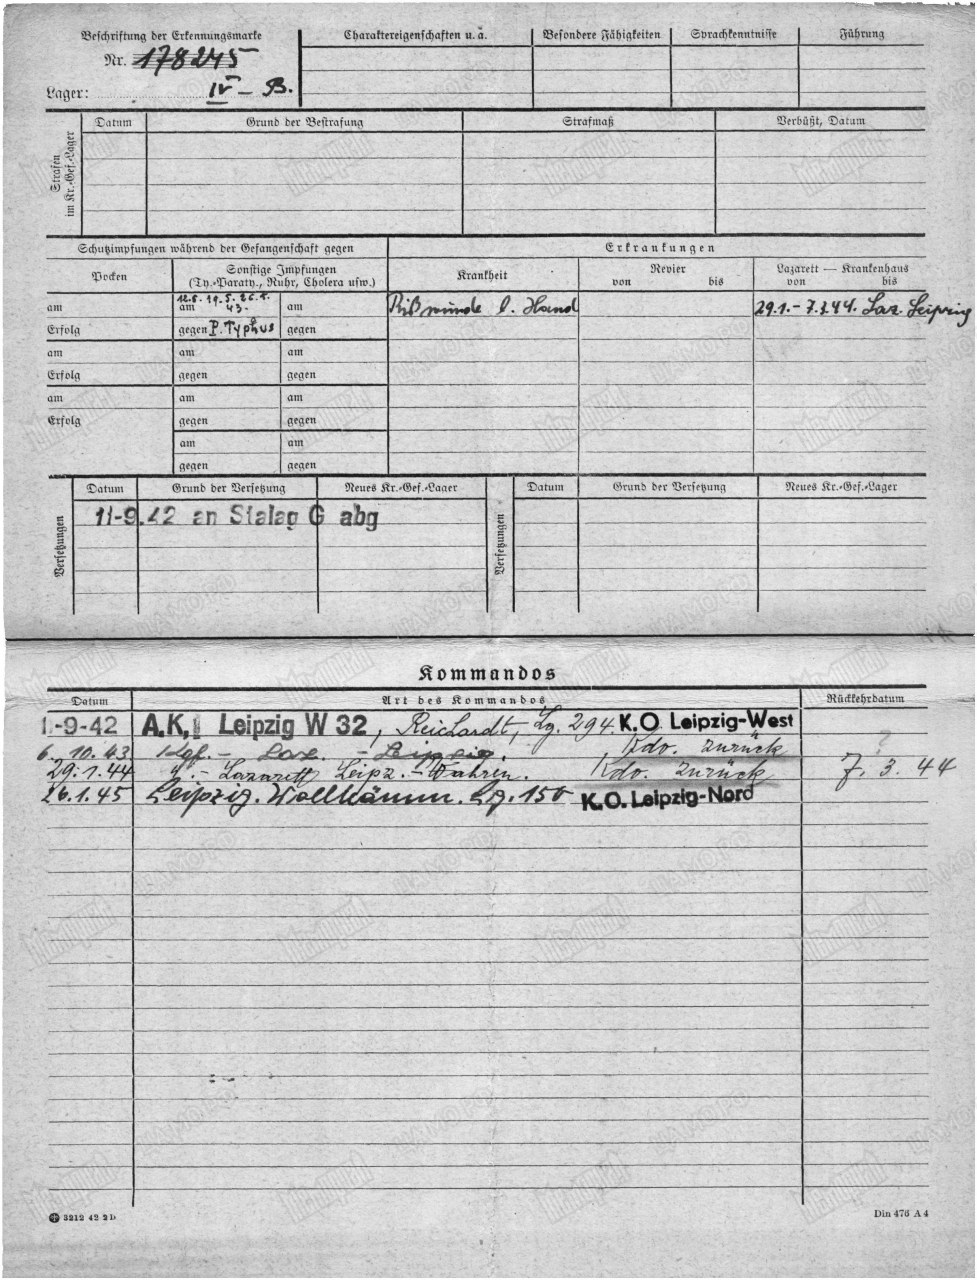 Beschriftung der Erkennungsmarke
Nr. 178245
Lager: IV – B.
Charaktereigenschaften u. ä.
Besondere Fähigkeiten
Sprachkenntnisse
Führung
Strafen im Kr.-Gef.-Lager
Datum
Grund der Bestrafung
Strafmaß
Verbüßt, Datum
Schutzimpfungen während der Gefangenschaft gegen
Erkrankungen
Pocken
Sonstige Impfungen
(Ty.-Paraty., Ruhr, Cholera usw.)
Krankheit
Revier
von bis
Lazarett — Krankenhaus
von bis
12.5. 19.5. 26.5.
am am 43. am
Rißwunde l. Hand
29.1.-7.3.44. Laz. Leipzig
Erfolg gegen P. Typhus gegen
am am am
Erfolg gegen gegen
am am am
Erfolg gegen gegen
am am
gegen gegen
Versetzungen
Datum
Grund der Versetzung
Neues Kr.-Gef.-Lager
Versetzungen
Datum
Grund der Versetzung
Neues Kr.-Gef.-Lager
11-9.42 an Stalag G abg
Kommandos
Datum
Art des Kommandos
Rückkehrdatum
1.-9-42 A.K. Leipzig W 32, Reichardt, Lg. 294. K.O. Leipzig-West
6. 10. 43 Kgf. - Laz. - Leipzig. Kdo. zurück ?
29. 1. 44 Lazarett Leipz. - Wahren. Kdo. zurück 7. 3. 44
26.1.45 Leipzig. Wollkämm. Lg. 150 K.O. Leipzig-Nord
3212 42 2 D
Din 476 A 4